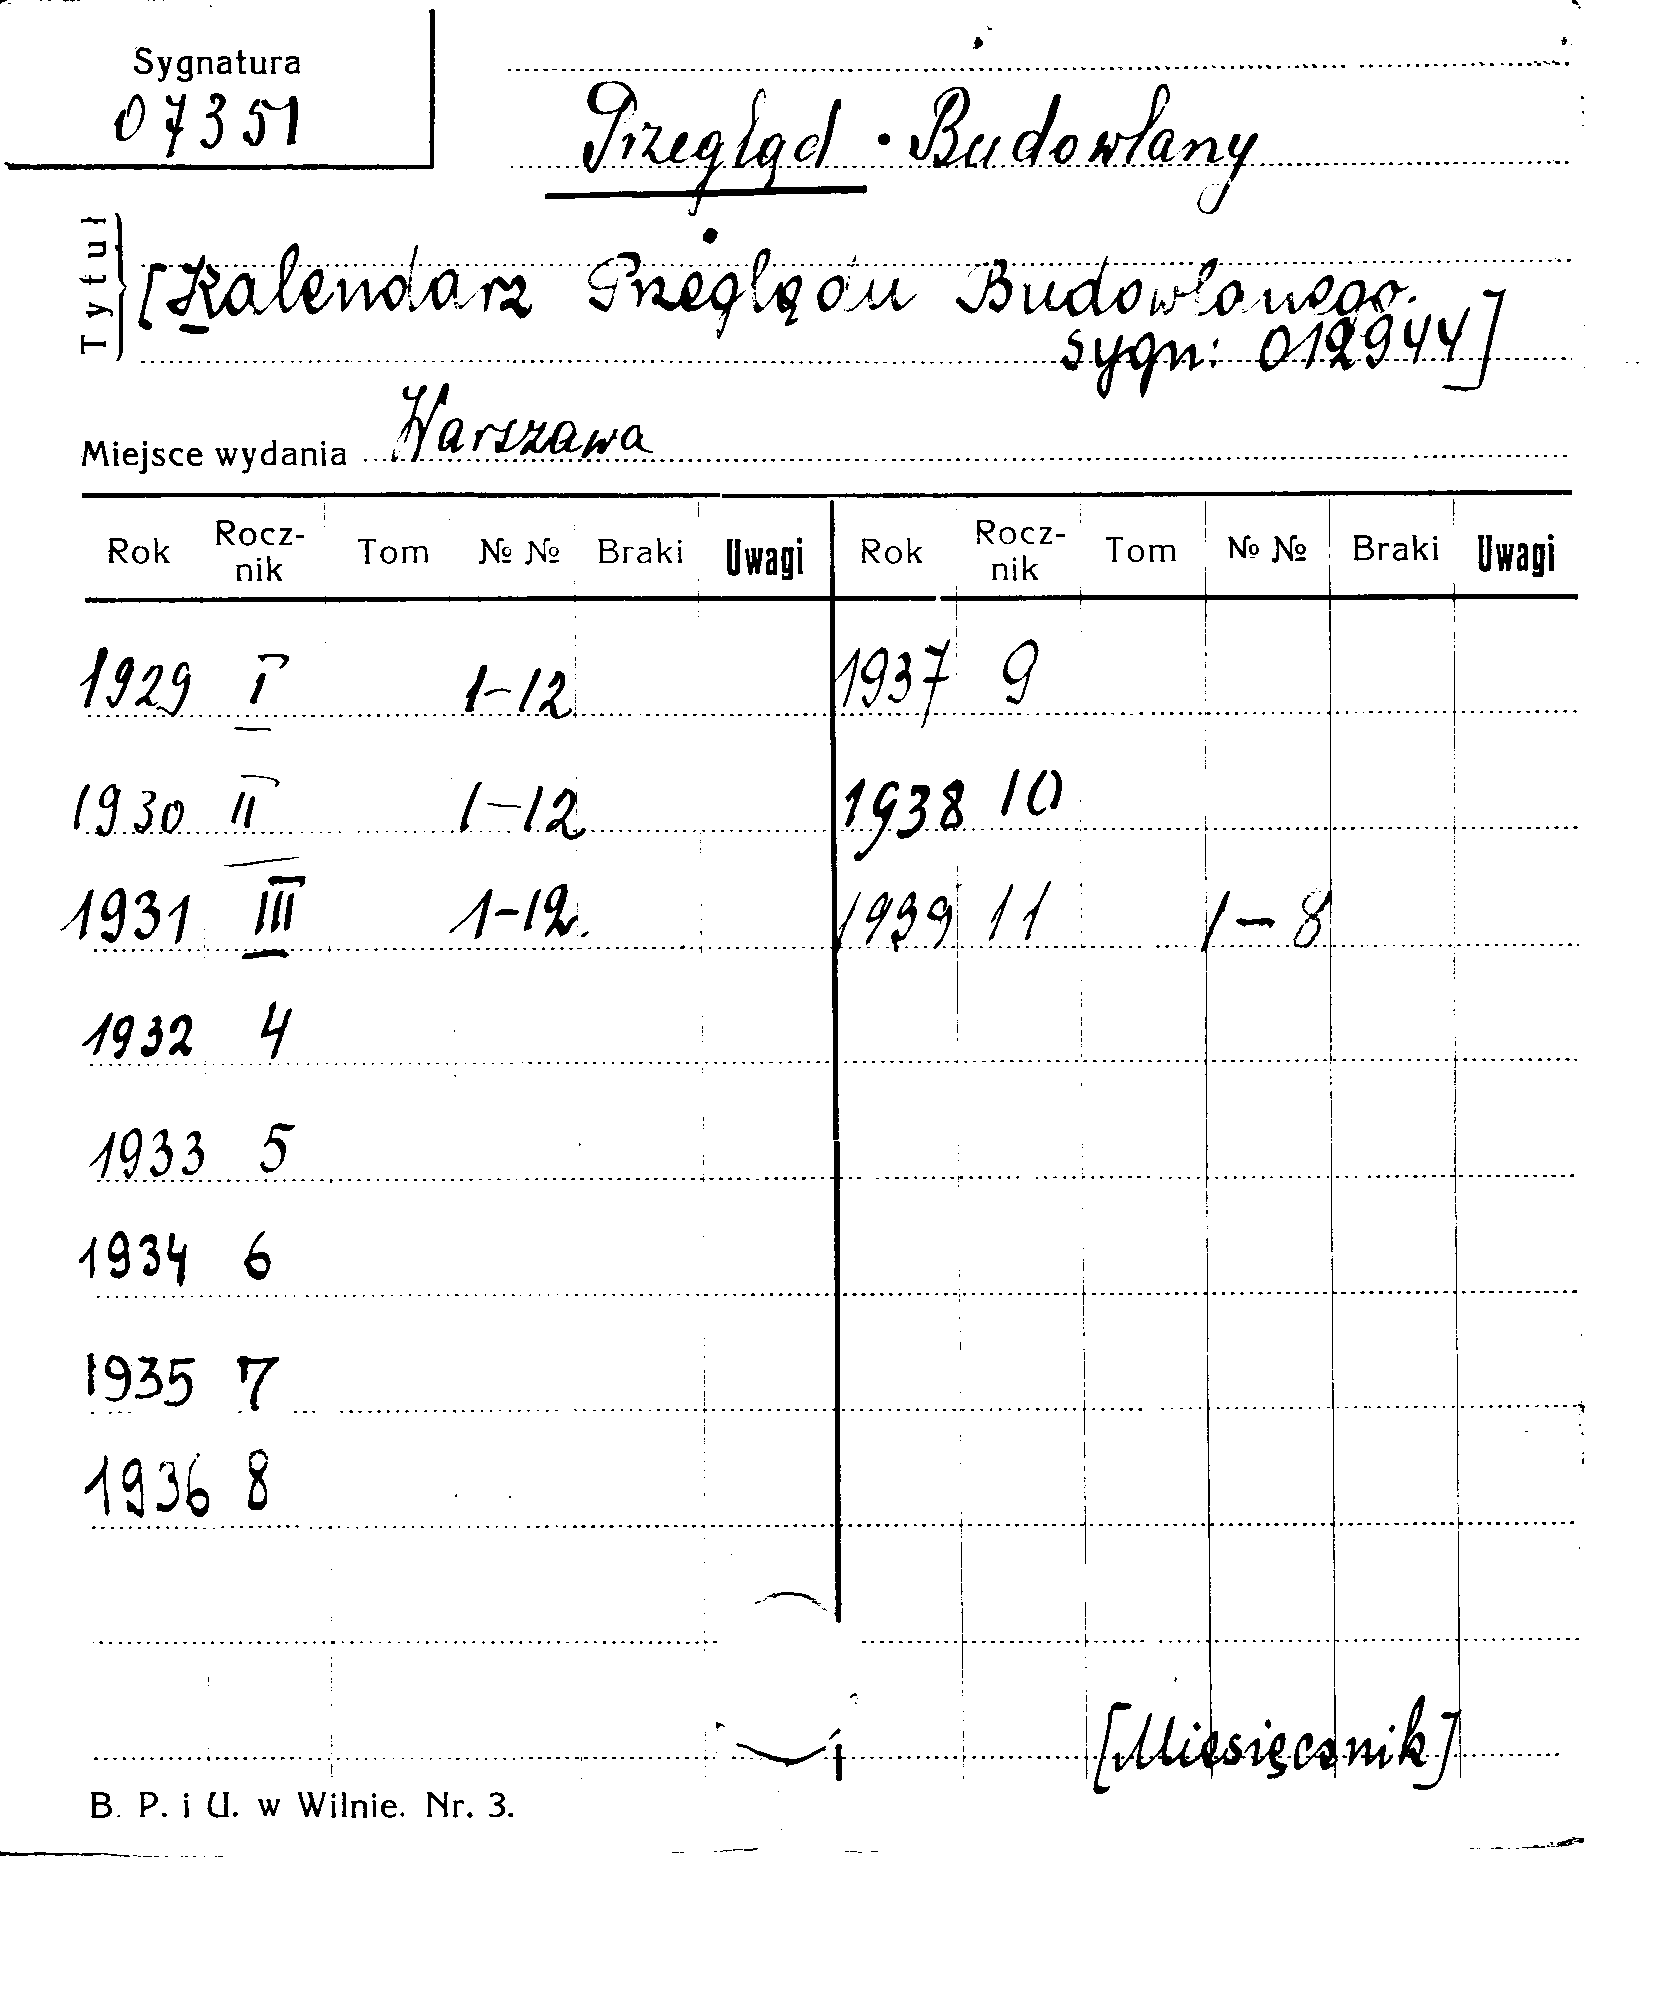 Sygnatura
07351
Przegląd Budowlany
Tytuł
[Kalendarz Przeglądu Budowlanego.
sygn: 012944]
Miejsce wydania Warszawa
Rok Rocz-nik Tom № № Braki Uwagi Rok Rocz-nik Tom № № Braki Uwagi
1929 I 1-12 1937 9
1930 II 1-12 1938 10
1931 III 1-12. 1939 11 1-8
1932 4
1933 5
1934 6
1935 7
1936 8
[Miesięcznik]
B. P. i U. w Wilnie. Nr. 3.